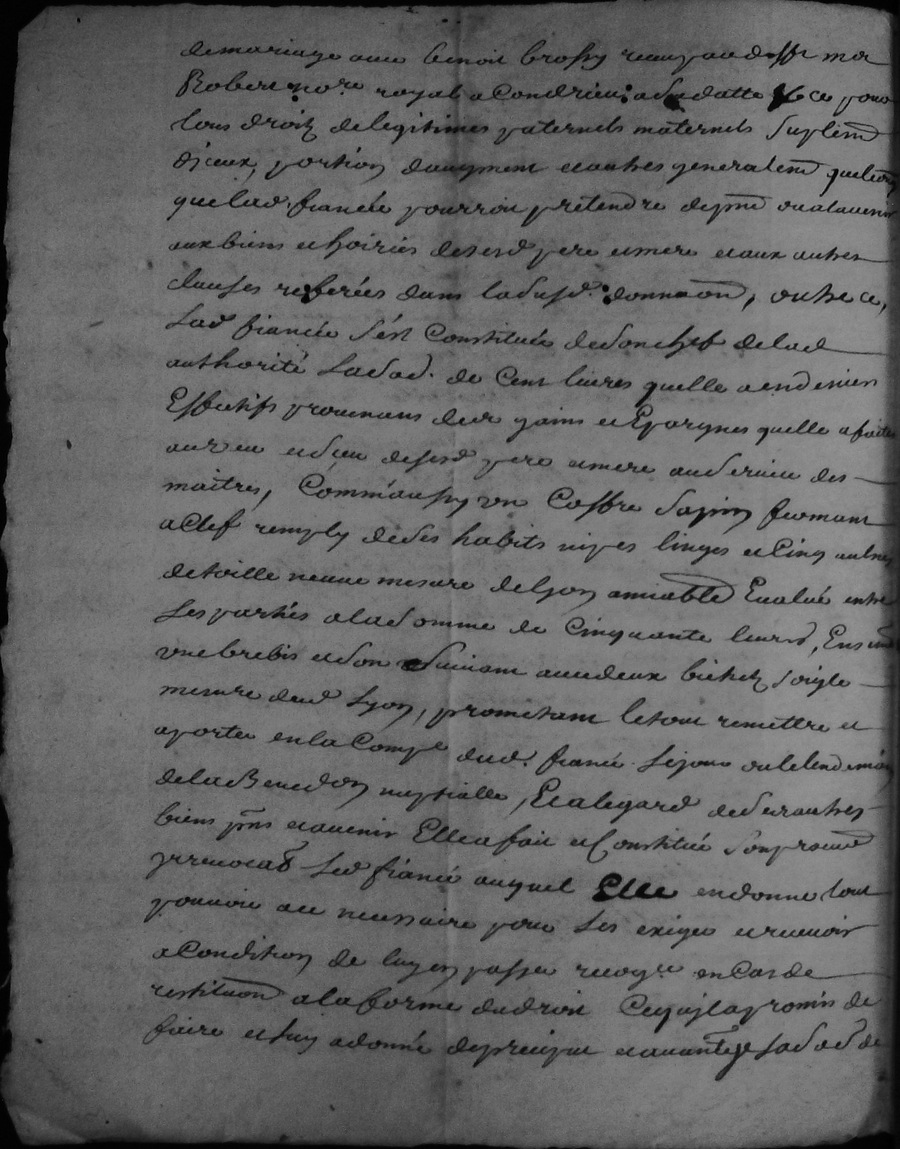 de mariage avec benoit brossy receu par
Robert no.re royal a Condrieu a sa datte & ce pour
tous droitz de legitimes paternels maternels suplem.t
d'jceux, portion d'augment et autres generalem.t quelconq
que lad. fiancée pourroit prétendre de pnt ou a l'avenir
aux biens et hoiries de sesd. pere et mere et aux autres
clauses referées dans la susd. donnaon, outre ce,
Lad. fiancée s'est Constituée de son chef de lad.
authorité La so.e de Cent livres quelle a en deniers
Effectifs provenans de ses gains et Epargnes quelle a faites
au veu et sceu de sesd. pere et mere au service des
maîtres, Comm'aussy vn Coffre sapin fermant
a Clef remply de ses habits nipes linges et Cinq aulnes
de toille neuve mesure de lyon amiablem.t Evalué entre
Les parties a la somme de Cinquante livres, Ensemble
vne brebis et son suivant avec deux bichetz soigle
mesure dud. Lyon, promettant le tout remettre et
aporter en la Comp.e dud. fiancé le jour ou le lendemain
de la Benedon nuptialle, Et a l'egard de ses autres
biens pnts et avenir Elle a fait et Constitué son procureur
jrrevocab. Led. fiancé auquel Elle en donne tout
pouvoir a ce necessaire pour Les exiger et recevoir
a Condition de luy en passer recogn.ce en Cas de
restituon a la forme du droit Ce qu'jl a promis de
faire et luy a donné de preciput et avantage La so.e de